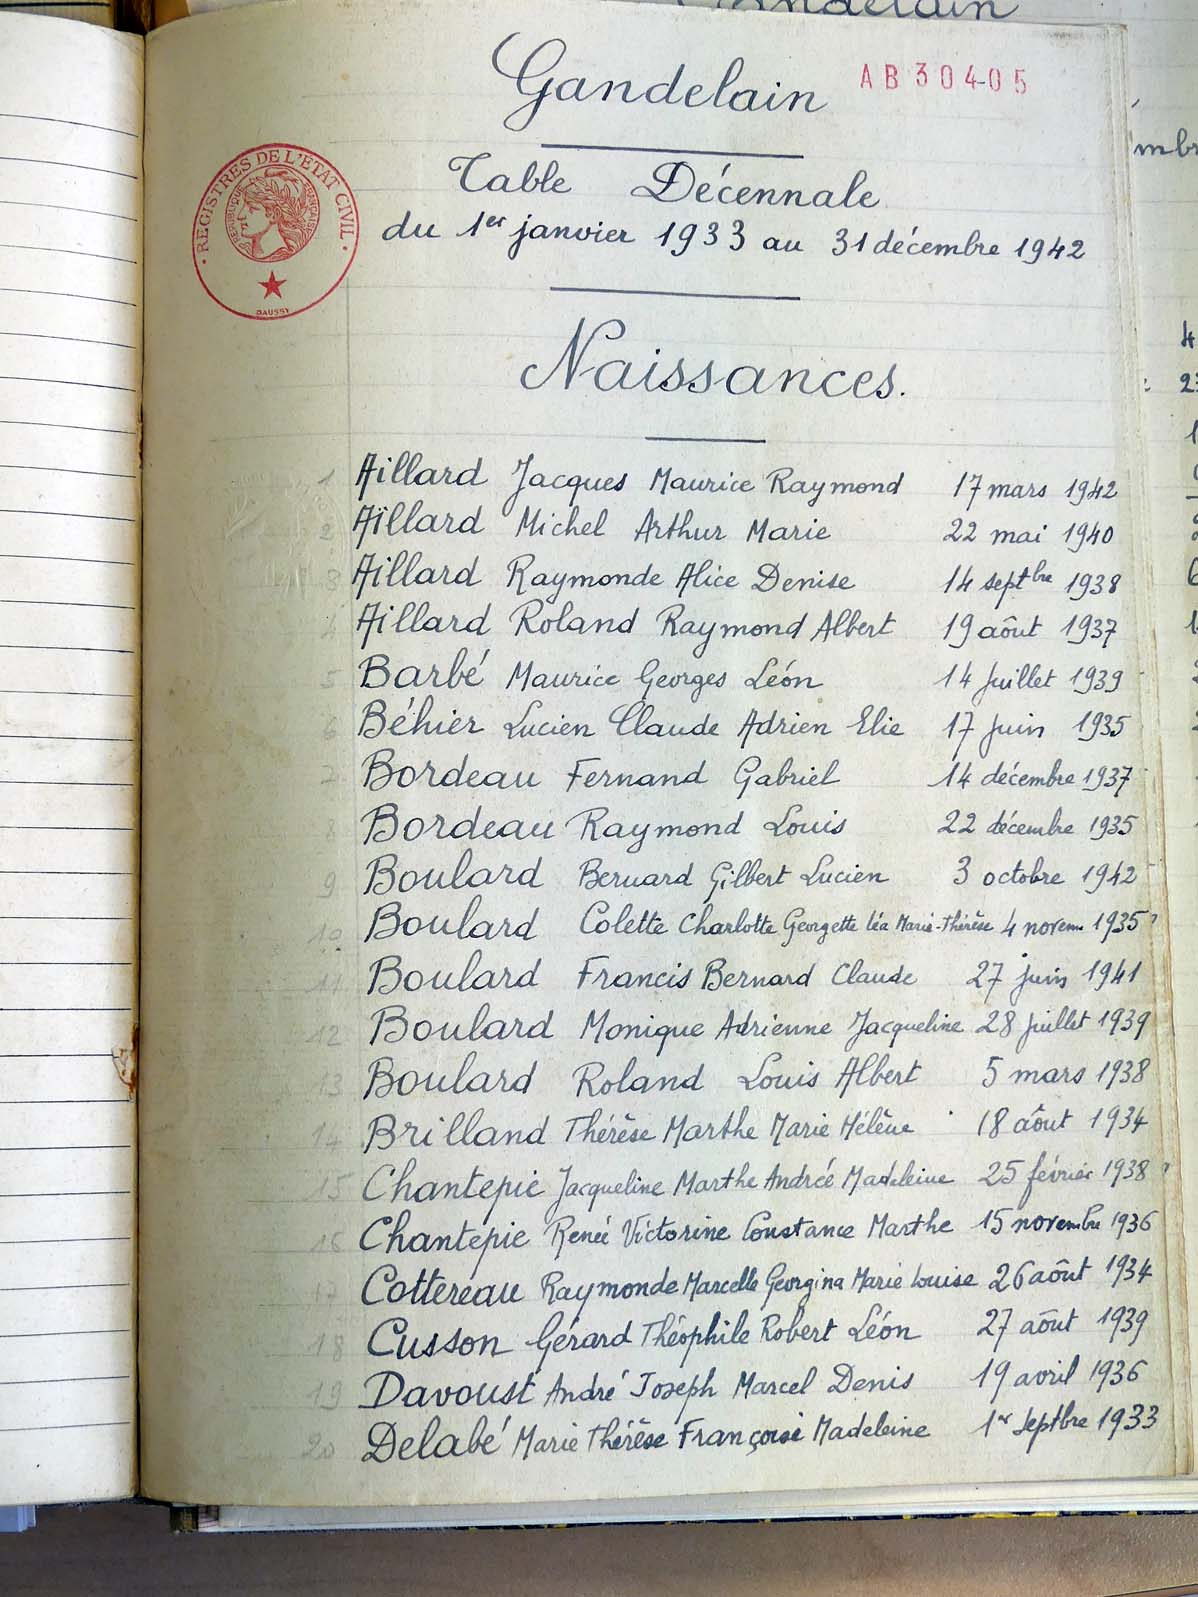 Gandelain
AB30405
REGISTRES DE L'ETAT CIVIL
RÉPUBLIQUE FRANÇAISE
DAUSSY
Table Décennale
du 1er janvier 1933 au 31 décembre 1942
Naissances.
1 Aillard Jacques Maurice Raymond 17 mars 1942
2 Aillard Michel Arthur Marie 22 mai 1940
3 Aillard Raymonde Alice Denise 14 septbre 1938
4 Aillard Roland Raymond Albert 19 aôut 1937
5 Barbé Maurice Georges Léón 14 Juillet 1939
6 Béhier Lucien Claude Adrien Elie 17 Juin 1935
7 Bordeau Fernand Gabriel 14 décembre 1937
8 Bordeau Raymond Louis 22 décembre 1935
9 Boulard Bernard Gilbert Lucien 3 octobre 1942
10 Boulard Colette Charlotte Georgette Léa Marie-Thérèse 4 novem 1935
11 Boulard Francis Bernard Claude 27 juin 1941
12 Boulard Monique Adrienne Jacqueline 28 Juillet 1939
13 Boulard Roland Louis Albert 5 mars 1938
14 Brilland Thérèse Marthe Marie Hélène 18 aôut 1934
15 Chantepie Jacqueline Marthe Andrée Madeleine 25 février 1938
16 Chantepie Renée Victorine Constance Marthe 15 novembre 1936
17 Cottereau Raymonde Marcelle Georgina Marie Louise 26 aôut 1934
18 Cusson Gérard Théophile Robert Léón 27 aôut 1939
19 Davoust André Joseph Marcel Denis 19 avril 1936
20 Delabé Marie Thérèse Françoise Madeleine 1er Septbre 1933